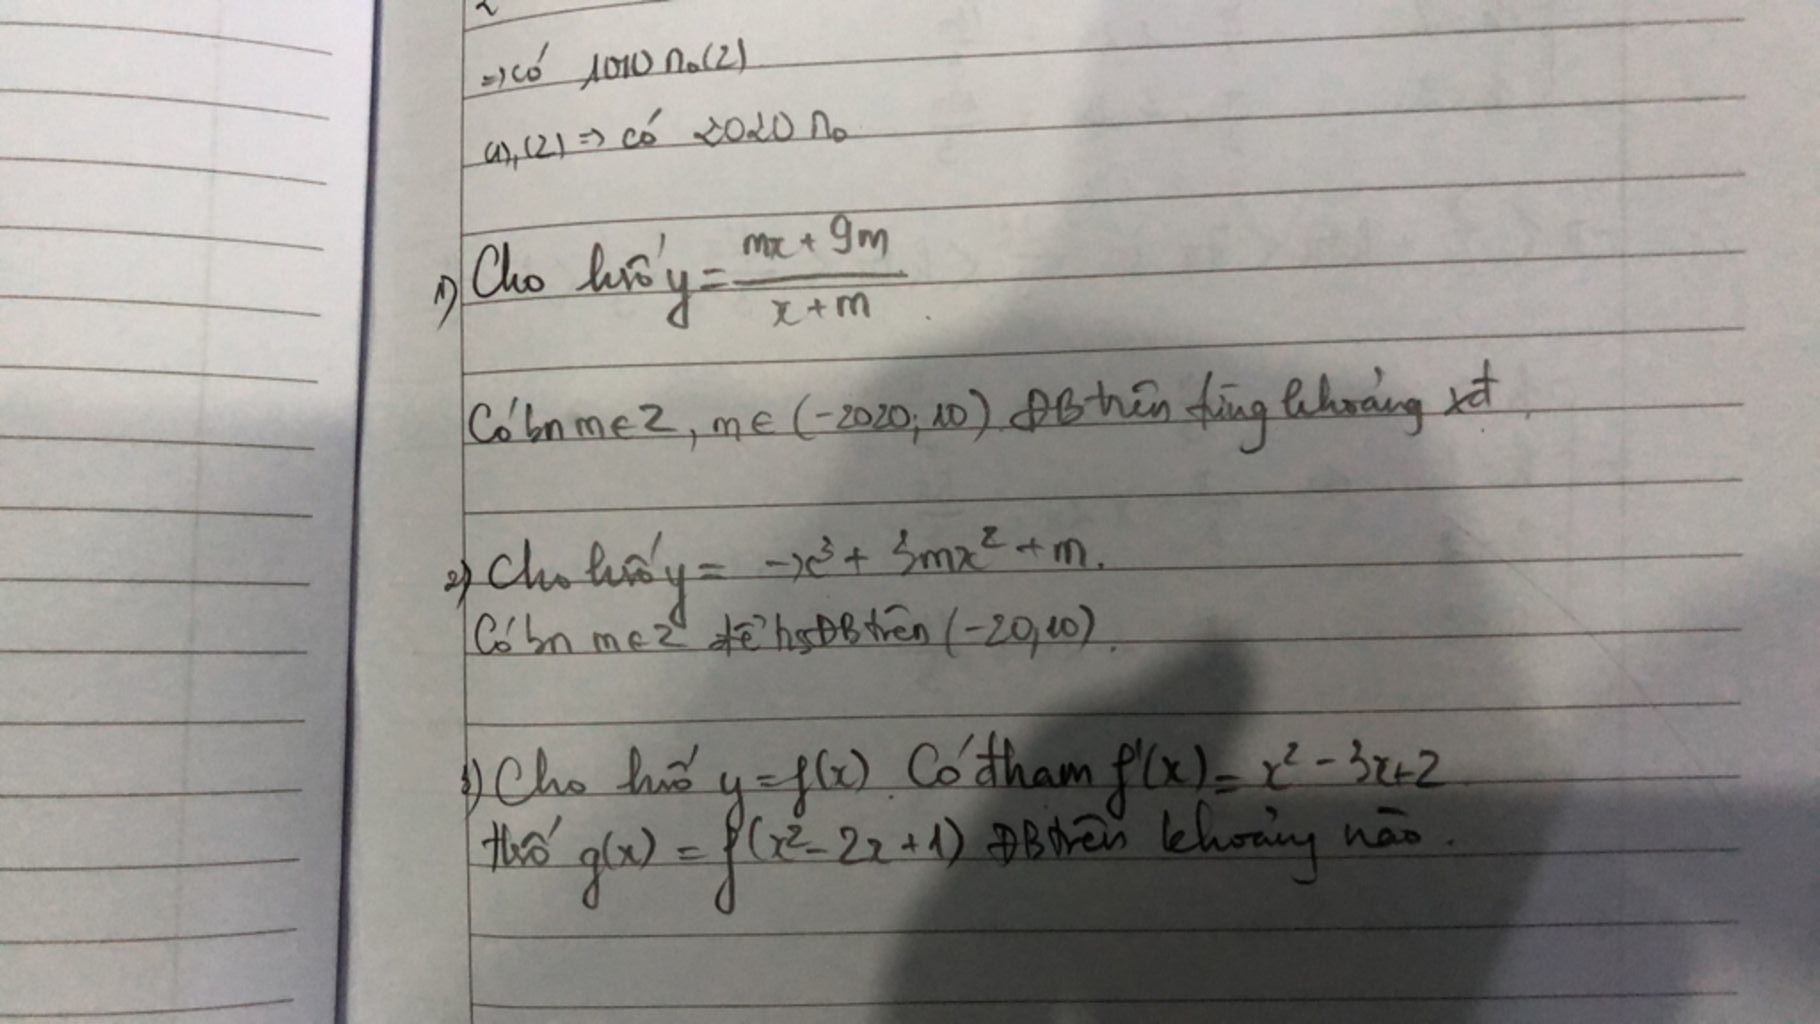 =) có 1010 no (2)
(1), (2) => có 2020 no
1) Cho hsố y = \frac{mx + 9m}{x + m}
Có bn m ∈ Z, m ∈ (-2020; 10) ĐB trên từng khoảng xđ
2) Cho hsố y = -x³ + 3mx² + m.
Có bn m ∈ Z để hs ĐB trên (-20, 10).
3) Cho hsố y = f(x). Có đham f'(x) = x² - 3x + 2
thsố g(x) = f(x² - 2x + 1) ĐB trên khoảng nào.